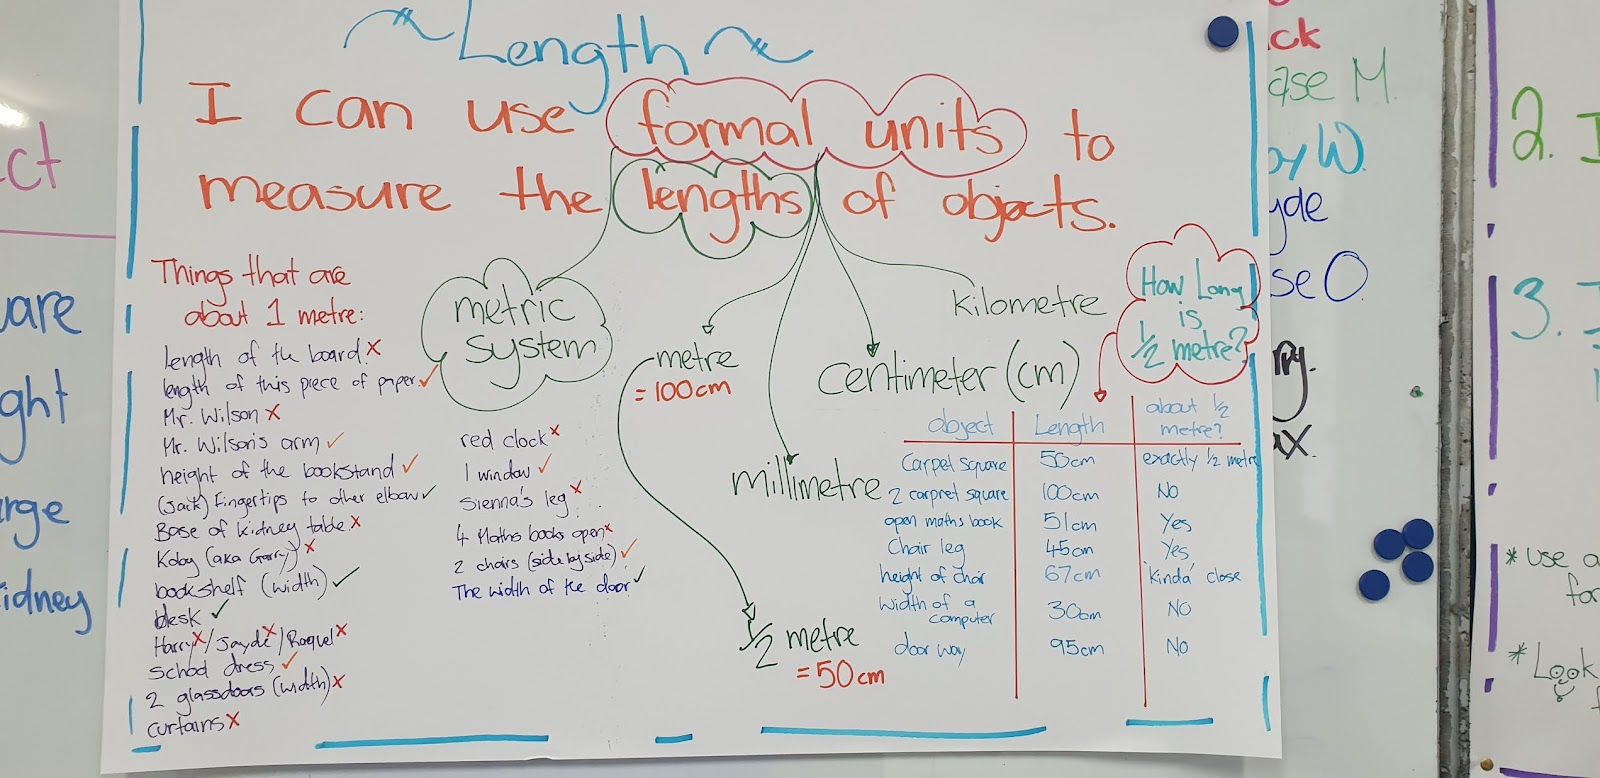 ~ Length ~
I can use formal units to
measure the lengths of objects.
Things that are
about 1 metre:
length of the board X
length of this piece of paper ✓
Mr. Wilson X
Mr. Wilson's arm ✓
height of the bookstand ✓
(Jack) Fingertips to other elbow ✓
Base of kidney table X
Koby (aka Garry) X
bookshelf (width) ✓
desk ✓
Harry X / Jayde X / Raquel X
school dress ✓
2 glassdoors (width) X
curtains X
metric
system
red clock X
1 window ✓
Sienna's leg X
4 Maths books open X
2 chairs (side by side) ✓
The width of the door ✓
metre
= 100cm
millimetre
centimeter (cm)
kilometre
1/2 metre
= 50cm
How Long
is
1/2 metre?
object Length about 1/2
metre?
Carpet square 50cm exactly 1/2 metre
2 carpret square 100cm No
open maths book 51cm Yes
Chair leg 45cm Yes
height of chair 67cm 'kinda' close
width of a
computer 30cm No
door way 95cm No
ct
uare
ght
arge
idney
ck
ase M.
oy W.
yde
se O.
ry.
ax.
2. I
3.
* use a
for
* Look